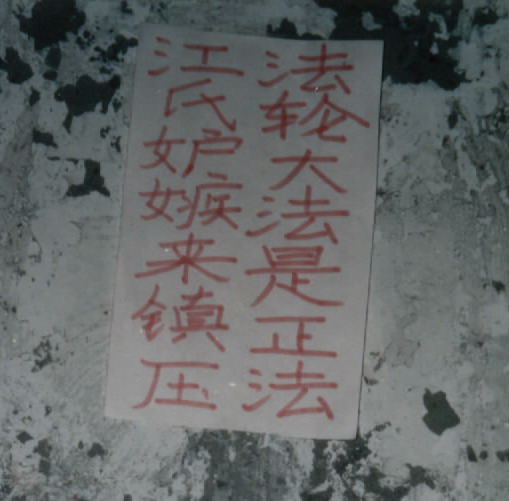 法轮大法是正法
江氏妒嫉来镇压